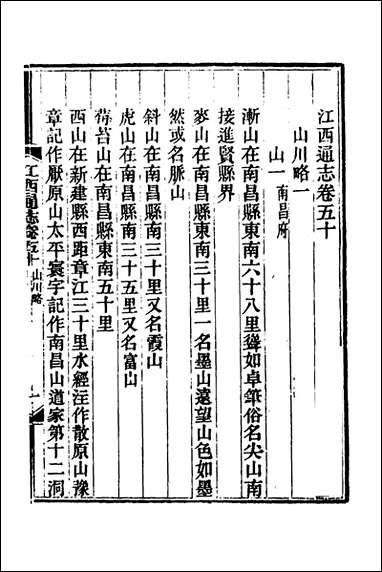 江西通志卷五十
山川略一
山一南昌府
漸山在南昌縣東南六十八里聳如卓筆俗名尖山南
接進賢縣界
麥山在南昌縣東南三十里一名墨山遠望山色如墨
然或名脈山
斜山在南昌縣南三十里又名霞山
虎山在南昌縣南三十五里又名富山
莓苔山在南昌縣東南五十里
西山在新建縣西距章江三十里水經注作散原山豫
章記作厭原山太平寰宇記作南昌山道家第十二洞
江西通志卷五十 山川略 一